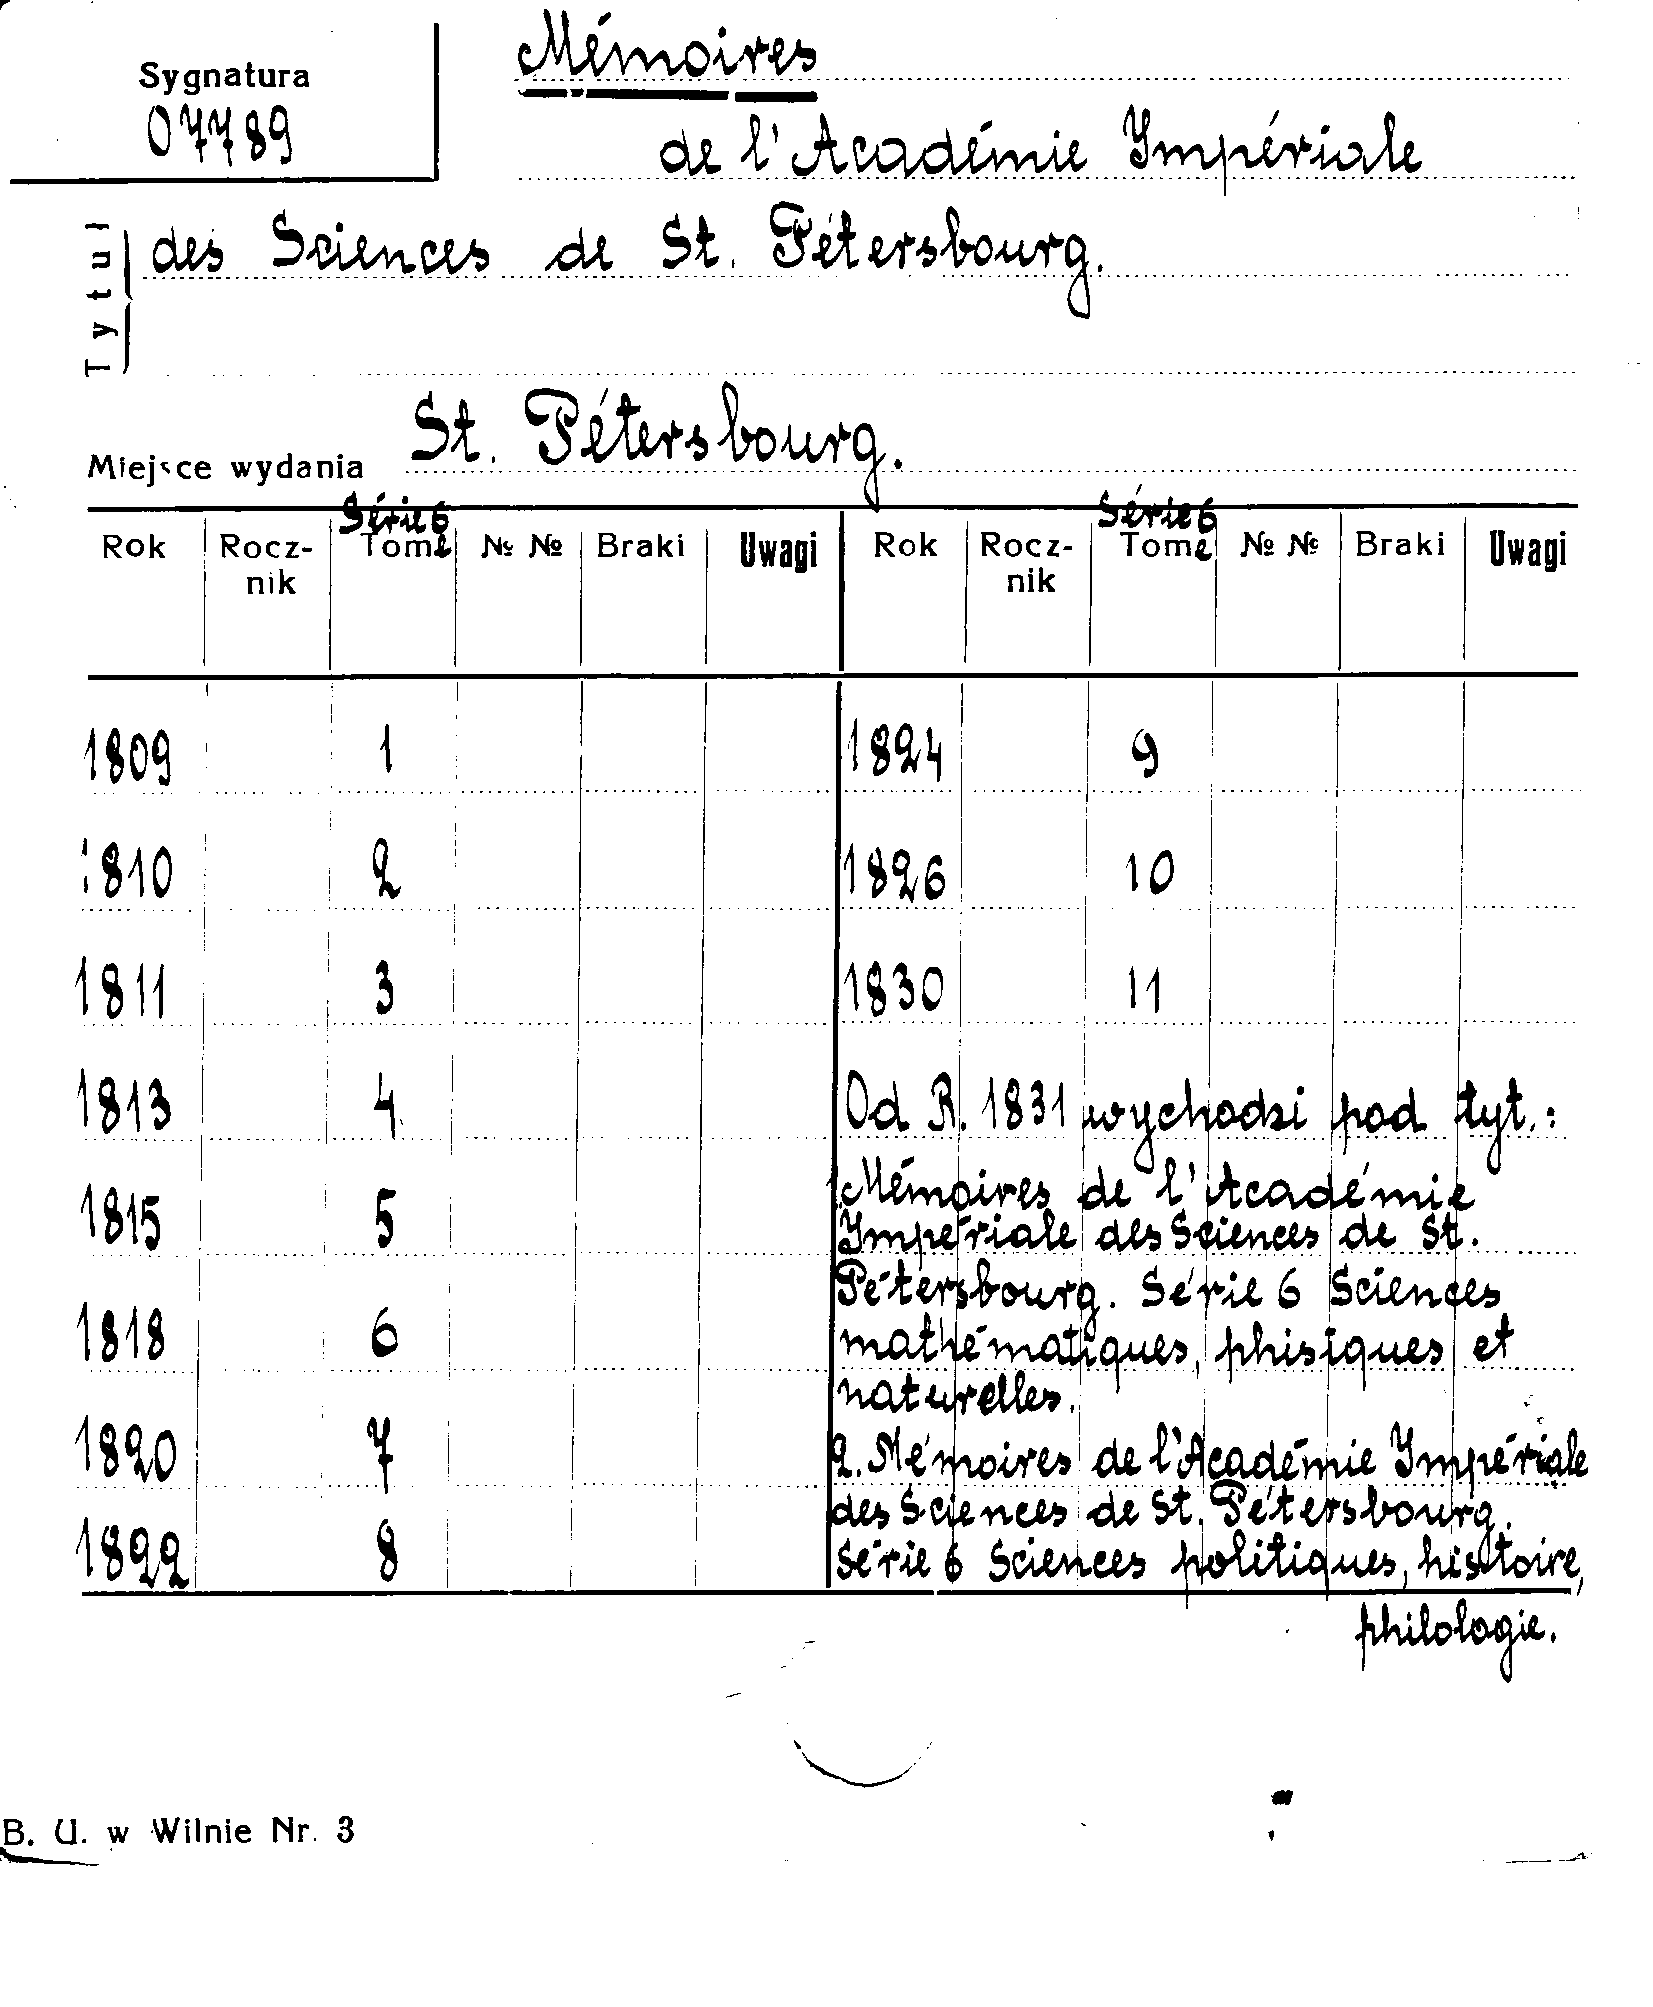 Sygnatura
07789
Mémoires
de l'Académie Impériale
Tytuł
des Sciences de St. Pétersbourg.
Miejsce wydania St. Pétersbourg.
Série 6 Série 6
Rok Rocz- Tome № № Braki Uwagi Rok Rocz- Tome № № Braki Uwagi
nik nik
1809 1 1824 9
1810 2 1826 10
1811 3 1830 11
1813 4 Od R. 1831 wychodzi pod tyt.:
1815 5 Mémoires de l'Académie
Impériale des Sciences de St.
Pétersbourg. Série 6 Sciences
1818 6 mathématiques, phisiques et
naturelles.
1820 7 2. Mémoires de l'Académie Impériale
des Sciences de St. Pétersbourg.
1822 8 Série 6 Sciences politiques, histoire,
philologie.
B. U. w Wilnie Nr. 3